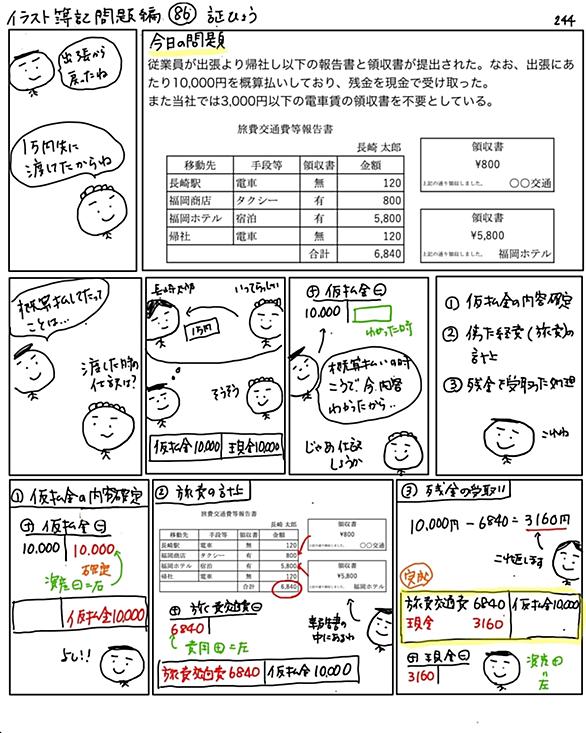 イラスト簿記問題編 86 証ひょう
244
出張から
戻ったね
1万円先に
渡してたからね
今日の問題
従業員が出張より帰社し以下の報告書と領収書が提出された。なお、出張にあ
たり10,000円を概算払いしており、残金を現金で受け取った。
また当社では3,000円以下の電車賃の領収書を不要としている。
旅費交通費等報告書
長崎 太郎
移動先 手段等 領収書 金額
長崎駅 電車 無 120
福岡商店 タクシー 有 800
福岡ホテル 宿泊 有 5,800
帰社 電車 無 120
合計 6,840
領収書
¥800
上記の通り領収しました。 〇〇交通
領収書
¥5,800
上記の通り領収しました。 福岡ホテル
概算払してたって
ことは…
渡した時の
仕訳は?
長崎太郎
いってらっしゃい
1万円
そうそう
仮払金10,000 現金10,000
+ 仮払金 −
10,000
わかった時
概算払いの時
こうで今、内容
わかったから…
じゃあ仕訳
しようか
① 仮払金の内容確定
② 使った経費(旅交)の
計上
③ 残金を受取った処理
これね
① 仮払金の内容確定
+ 仮払金 −
10.000 10.000
資産−=右
仮払金10,000
よし!!
② 旅費の計上
旅費交通費等報告書
長崎 太郎
移動先 手段等 領収書 金額
長崎駅 電車 無 120
福岡商店 タクシー 有 800
福岡ホテル 宿泊 有 5,800
帰社 電車 無 120
合計 6,840
領収書
¥800
〇〇交通
領収書
¥5,800
福岡ホテル
+ 旅費交通費 −
6840
費用+=左
報告書の
中にあるね
旅費交通費 6840 仮払金 10,000
③ 残金の受取り
10,000円 − 6840 = 3160円
これ返します
完成
旅費交通費 6840 仮払金10,000
現金 3160
+ 現金 −
3160
資産+
=
左